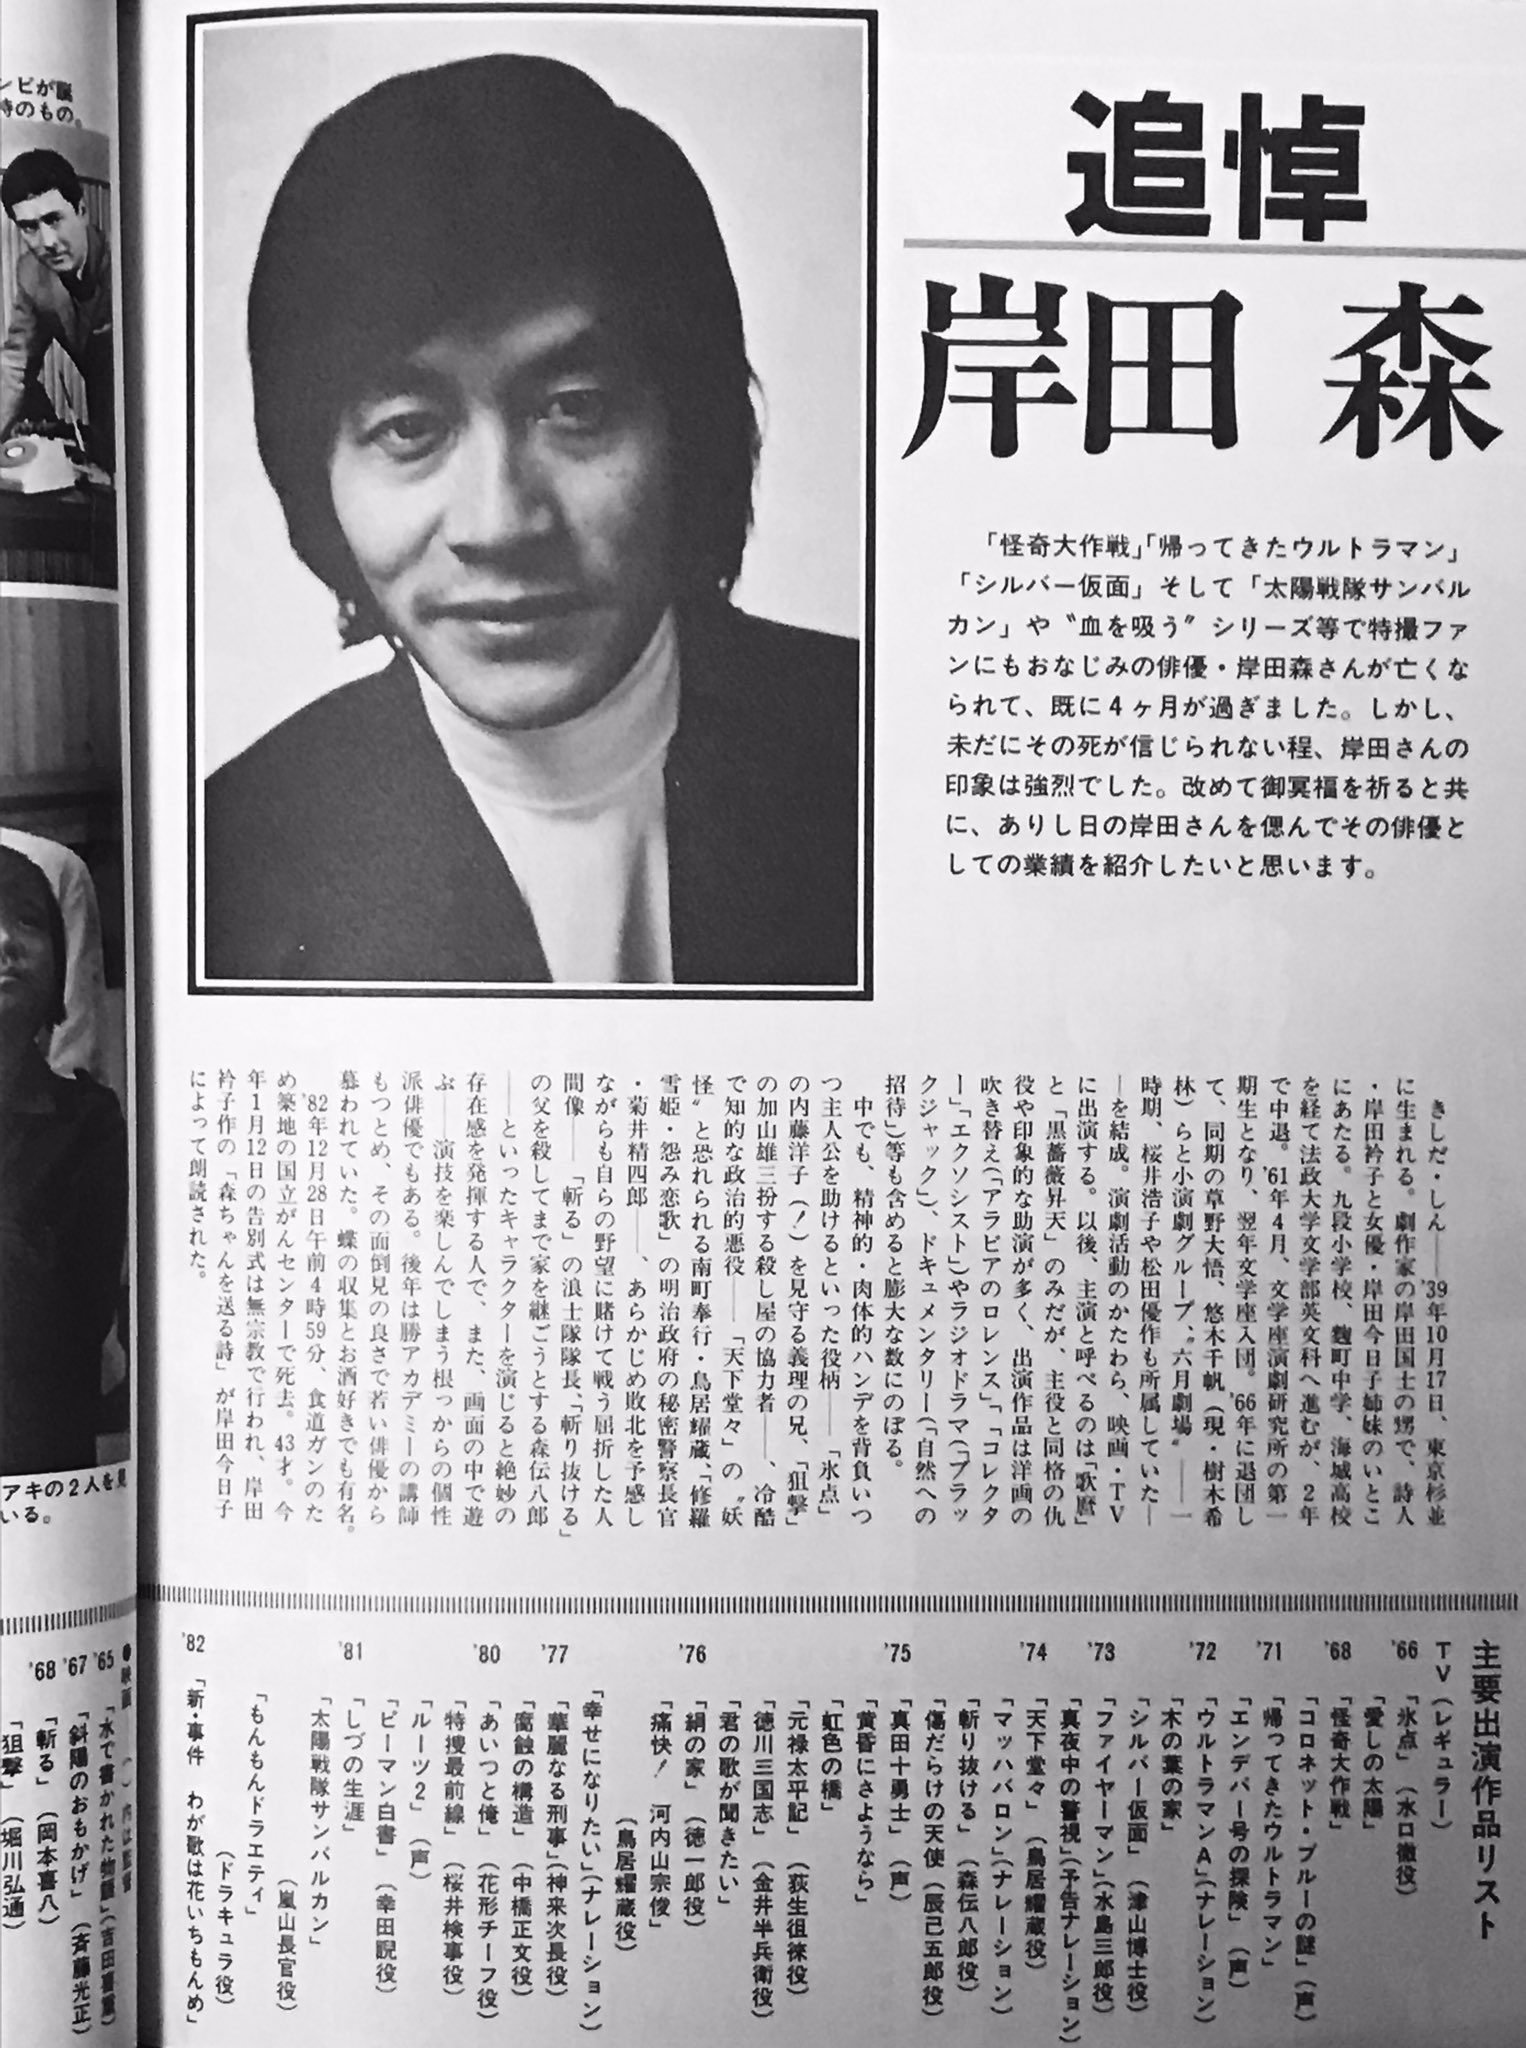 ンビが誕
時のもの。
追悼
岸田 森
「怪奇大作戦」「帰ってきたウルトラマン」
「シルバー仮面」そして「太陽戦隊サンバル
カン」や〝血を吸う〟シリーズ等で特撮ファ
ンにもおなじみの俳優・岸田森さんが亡くな
られて、既に4ヶ月が過ぎました。しかし、
未だにその死が信じられない程、岸田さんの
印象は強烈でした。改めて御冥福を祈ると共
に、ありし日の岸田さんを偲んでその俳優と
しての業績を紹介したいと思います。
きしだ・しん――'39年10月17日、東京杉並
に生まれる。劇作家の岸田国士の甥で、詩人
・岸田衿子と女優・岸田今日子姉妹のいとこ
にあたる。九段小学校、麹町中学、海城高校
を経て法政大学文学部英文科へ進むが、2年
で中退。'61年4月、文学座演劇研究所の第一
期生となり、翌年文学座入団。'66年に退団し
て、同期の草野大悟、悠木千帆(現・樹木希
林)らと小演劇グループ、〝六月劇場〟――一
時期、桜井浩子や松田優作も所属していた―
―を結成。演劇活動のかたわら、映画・TV
に出演する。以後、主演と呼べるのは「歌麿」
と「黒薔薇昇天」のみだが、主役と同格の仇
役や印象的な助演が多く、出演作品は洋画の
吹き替え(「アラビアのロレンス」「コレクタ
ー」「エクソシスト」)やラジオドラマ(「ブラッ
クジャック」)、ドキュメンタリー(「自然への
招待」)等も含めると膨大な数にのぼる。
中でも、精神的・肉体的ハンデを背負いつ
つ主人公を助けるといった役柄――「氷点」
の内藤洋子(!)を見守る義理の兄、「狙撃」
の加山雄三扮する殺し屋の協力者――、冷酷
で知的な政治的悪役――「天下堂々」の〝妖
怪〟と恐れられる南町奉行・鳥居耀蔵、「修羅
雪姫・怨み恋歌」の明治政府の秘密警察長官
・菊井精四郎――、あらかじめ敗北を予感し
ながらも自らの野望に賭けて戦う屈折した人
間像――「斬る」の浪士隊隊長、「斬り抜ける」
の父を殺してまで家を継ごうとする森伝八郎
――といったキャラクターを演じると絶妙の
存在感を発揮する人で、また、画面の中で遊
ぶ――演技を楽しんでしまう根っからの個性
派俳優でもある。後年は勝アカデミーの講師
もつとめ、その面倒見の良さで若い俳優から
慕われていた。蝶の収集とお酒好きでも有名。
'82年12月28日午前4時59分、食道ガンのた
め築地の国立がんセンターで死去。43才。今
年1月12日の告別式は無宗教で行われ、岸田
衿子作の「森ちゃんを送る詩」が岸田今日子
によって朗読された。
アキの2人を見
いる。
主要出演作品リスト
TV(レギュラー)
'66 「氷点」(水口徹役)
「愛しの太陽」
'68 「怪奇大作戦」
「コロネット・ブルーの謎」(声)
'71 「帰ってきたウルトラマン」
「エンデバー号の探険」(声)
'72 「ウルトラマンA」(ナレーション)
「木の葉の家」
「シルバー仮面」(津山博士役)
'73 「ファイヤーマン」(水島三郎役)
「真夜中の警視」(予告ナレーション)
'74 「天下堂々」(鳥居耀蔵役)
「マッハバロン」(ナレーション)
「斬り抜ける」(森伝八郎役)
「傷だらけの天使」(辰巳五郎役)
'75 「真田十勇士」(声)
「黄昏にさようなら」
「虹色の橋」
「元禄太平記」(荻生徂徠役)
「徳川三国志」(金井半兵衛役)
「君の歌が聞きたい」
'76 「絹の家」(徳一郎役)
「痛快!河内山宗俊」
(鳥居耀蔵役)
「幸せになりたい」(ナレーション)
'77 「華麗なる刑事」(神来次長役)
「腐蝕の構造」(中橋正文役)
'80 「あいつと俺」(花形チーフ役)
「特捜最前線」(桜井検事役)
「ルーツ2」(声)
「ピーマン白書」(幸田説役)
'81 「しづの生涯」
「太陽戦隊サンバルカン」
(嵐山長官役)
「もんもんドラエティ」
(ドラキュラ役)
'82 「新・事件 わが歌は花いちもんめ」
●映画――( )内は監督
'65 「水で書かれた物語」(吉田喜重)
'67 「斜陽のおもかげ」(斉藤光正)
'68 「斬る」(岡本喜八)
「狙撃」(堀川弘通)